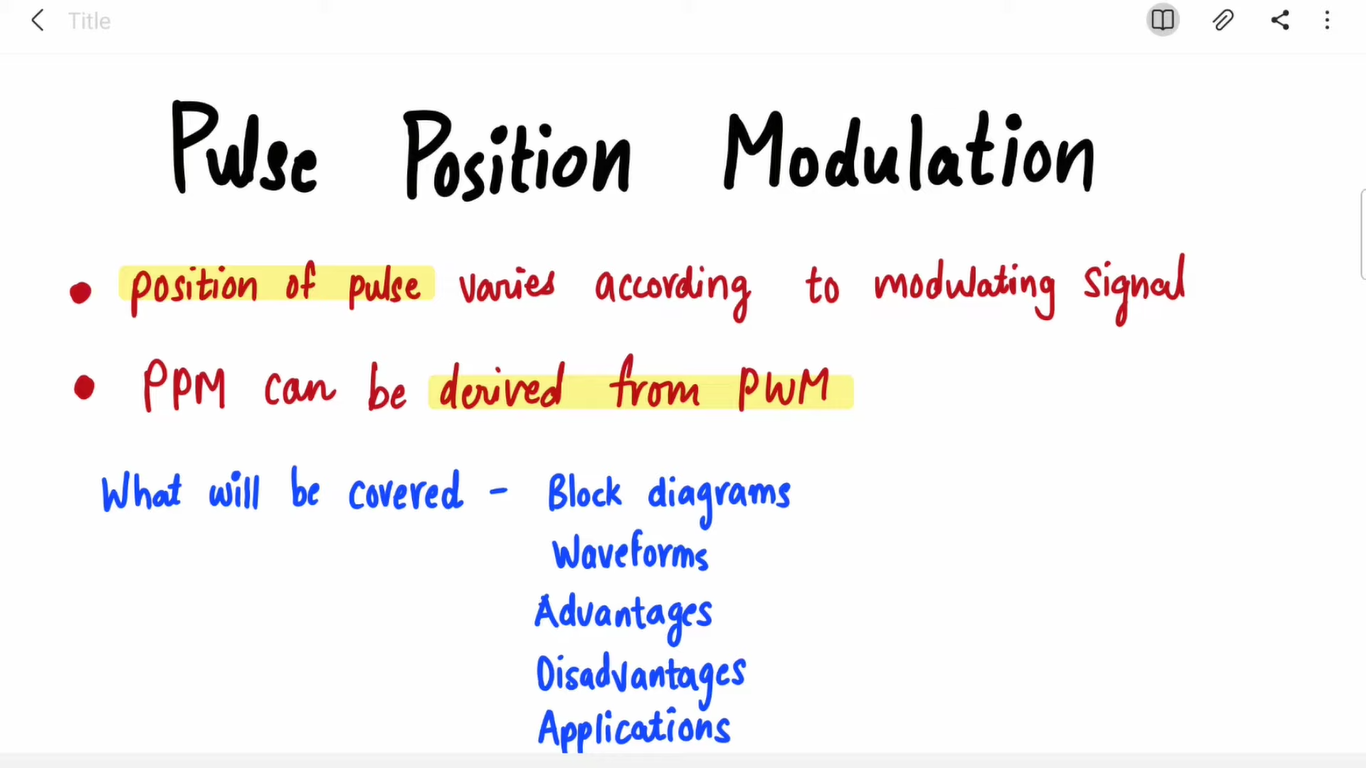 Title
Pulse Position Modulation
• position of pulse varies according to modulating signal
• PPM can be derived from PWM
What will be covered - Block diagrams
Waveforms
Advantages
Disadvantages
Applications